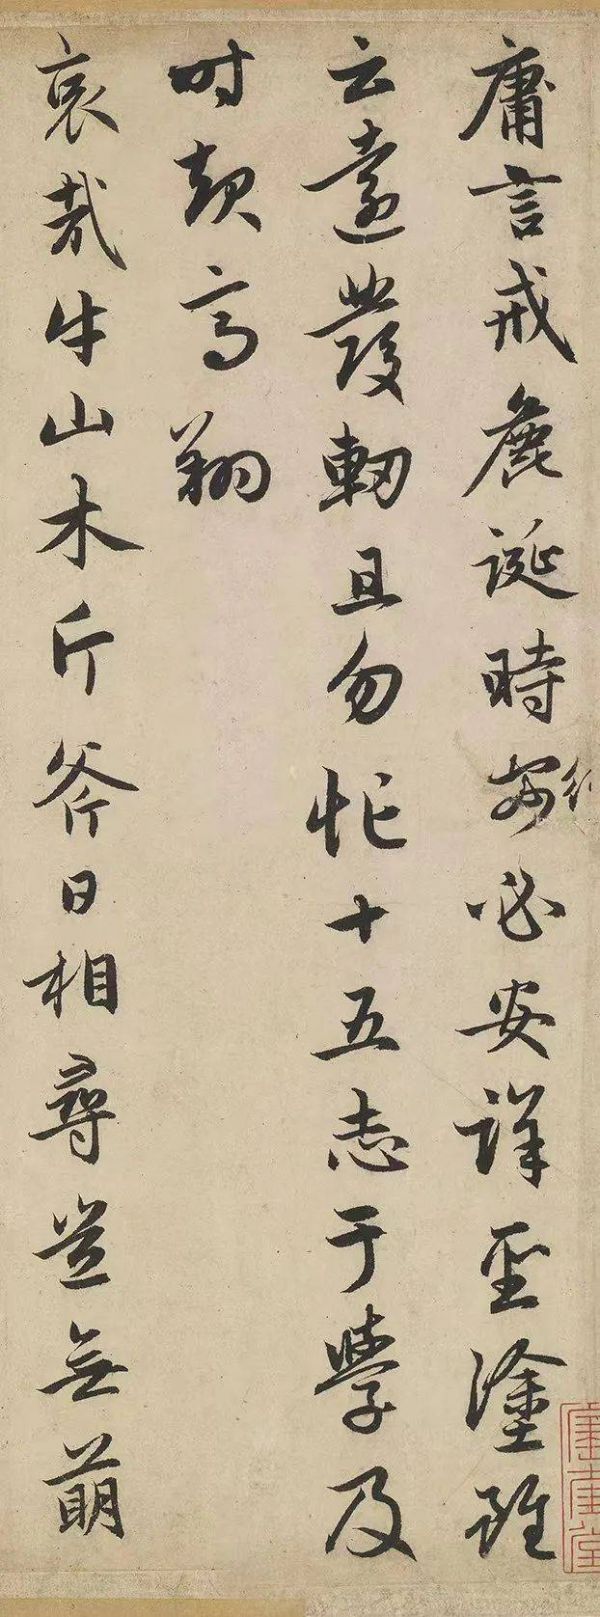 庸言戒麁誕時行必安詳聖塗雖
云遠發軔且勿忙十五志于學及
时起高翔
哀哉牛山木斤斧日相尋豈無萌